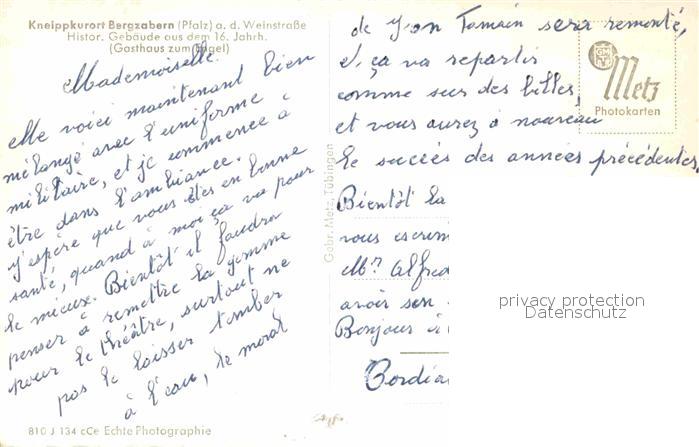 Kneippkurort Bergzabern (Pfalz) a. d. Weinstraße
Histor. Gebäude aus dem 16. Jahrh.
(Gasthaus zum Engel)
Mademoiselle.
Me voici maintenant bien
mélangé avec l'uniforme
militaire, et je commence à
être dans l'ambiance.
J'espère que vous êtes en bonne
santé, quand à moi ça va pour
le mieux. Bientôt il faudra
penser à remettre la gomme
pour le théâtre, surtout ne
pas le laisser tomber
à l'eau, le moral
810 J 134 cCe Echte Photographie
Gebr. Metz, Tübingen
de Yvon Tamain sera remonté,
et ça va repartir
comme sur des billes,
et vous aurez à nouveau
le succès des années précédentes.
Bientôt la
vous
Mr Alfred
avoir son
Bonjour à
GMT
Metz
Photokarten
privacy protection
Datenschutz